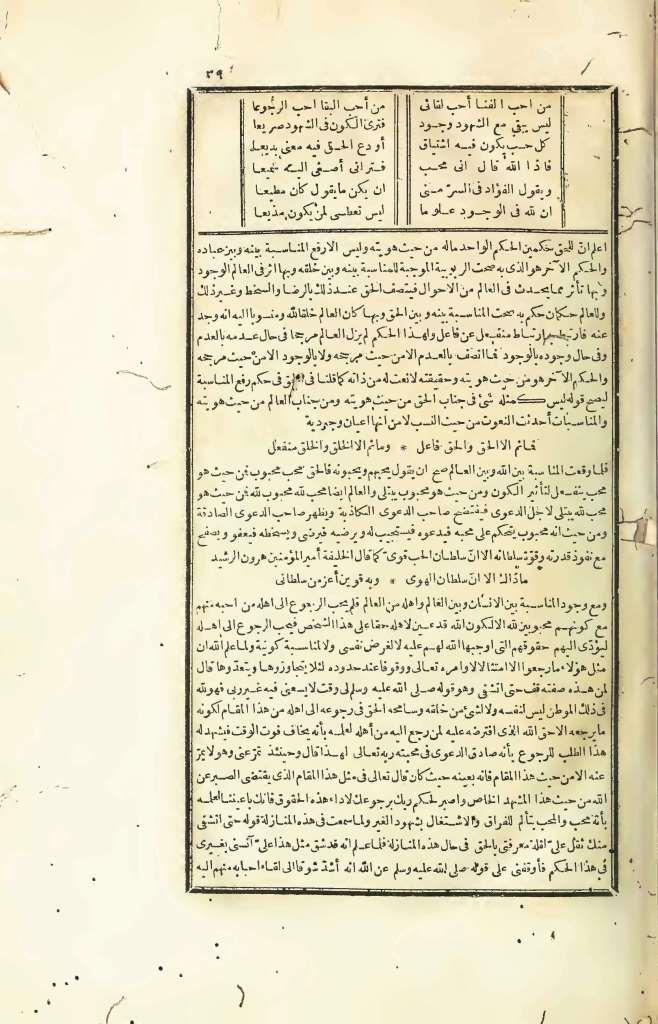 ٣٩
من احب الفنا أحب لقائى من أحب البقا احب الرجوعا
ليس يبقى مع الشهود وجود فترى الكون فى الشهود صريعا
كل حب يكون فيه اشتياق أودع الحق فيه معنى بديعا
فاذا الله قال انى محب فترانى أصغى اليه سميعا
ويقول الفؤاد فى السر منى ان يكن ما يقول كان مطيعا
ان لله فى الوجود علوما ليس تعطى لمن يكون مذيعا
اعلم انّ للحق حكمين الحكم الواحد ماله من حيث هويته وليس الا رفع المناسبة بينه وبين عباده
والحكم الآخر هو الذى به صحت الربوبية الموجبة للمناسبة بينه وبين خلقه وبها اثر فى العالم الوجود
وبها تأثر مما يحدث فى العالم من الاحوال فيتصف الحق عند ذلك بالرضا والسخط وغير ذلك
وللعالم حكمان حكم به صحت المناسبة بينه وبين الحق وبها كان العالم خلقا لله ومنسوبا اليه انه وجد
عنه فارتبط به ارتباط منفعل عن فاعل ولهذا الحكم لم يزل العالم مرجحا فى حال عدمه بالعدم
وفى حال وجوده بالوجود فما اتصف بالعدم الا من حيث مرجحه ولا بالوجود الا من حيث مرجحه
والحكم الآخر هو من حيث هويته وحقيقته لا نعت له من ذاته كما قلنا فى الحق فى حكم رفع المناسبة
ليصح قوله ليس كمثله شئ فى جناب الحق من حيث هويته ومن جناب العالم من حيث هويته
والمناسبات أحدثت النعوت من حيث النسب لا من انها اعيان وجودية
فما ثم الا الحق والحق فاعل * وما ثم الا الخلق والخلق منفعل
فلما وقعت المناسبة بين الله وبين العالم صح ان يقول يحبهم ويحبونه فالحق محب محبوب فمن حيث هو
محب ينفعل لتأثير الكون ومن حيث هو محبوب يبتلى والعالم ايضا محب لله محبوب لله فمن حيث هو
محب لله يبتلى لاجل الدعوى فيفتضح صاحب الدعوى الكاذبة ويظهر صاحب الدعوى الصادقة
ومن حيث انه محبوب يتحكم على محبه فيدعوه فيستجيب له ويرضيه فيرضى ويسخطه فيعفو ويصفح
مع نفوذ قدرته وقوّة سلطانه الا انّ سلطان الحب قوى كما قال الخليفة أمير المؤمنين هرون الرشيد
ماذاك الا ان سلطان الهوى * وبه قوين أعز من سلطانى
ومع وجود المناسبة بين الانسان وبين العالم واهله من العالم فلم يحب الرجوع الى اهله من احبه منهم
مع كونهم محبوبين لله الا لكون الله قد عين لاهله حقا على هذا الشخص فيحب الرجوع الى اهله
ليؤدّى اليهم حقوقهم التى اوجبها الله لهم عليه لا لغرض نفسى ولا لمناسبة كونية ولما علم الله ان
مثل هؤلاء ما رجعوا الا امتثالا لاوامره تعالى ووقوفا عند حدوده لئلا يتجاوزوها ويتعدّوها قال
لمن هذه صفته قف حتى اتشفى وهو قوله صلى الله عليه وسلم لى وقت لا يسعنى فيه غير ربى فهو لله
فى ذلك الموطن ليس لنفسه ولا لشئ من خلقه وسامحه الحق فى رجوعه الى اهله من هذا المقام لكونه
ما يرجعه الا حق الله الذى افترضه عليه لمن رجع اليه من أهله لعلمه بأنه يخاف فوت الوقت فيشهد له
هذا الطلب للرجوع بأنه صادق الدعوى فى محبته ربه تعالى لهذا قال وحينئذ تمر عنى وهو لا يمر
عنه الا من حيث هذا المقام فانه بعينه حيث كان قال تعالى فى مثل هذا المقام الذى يقتضى الصبر عن
الله من حيث هذا المشهد الخاص واصبر لحكم ربك برجوعك لاداء هذه الحقوق فانك باعيننا لعلمه
بأنه محب والمحب يتألم للفراق والاشتغال بشهود الغير ولما سمعت فى هذه المنازلة قوله حتى اتشفى
منك ثقل علىّ لقلة معرفتى بالحق فى حال هذه المنازلة فلما علم انه قد شق مثل هذا علىّ آنسنى بغيرى
فى هذا الحكم فأوقفنى على قوله صلى الله عليه وسلم عن الله انه أشدّ شوقا الى لقاء احبابه منهم اليه